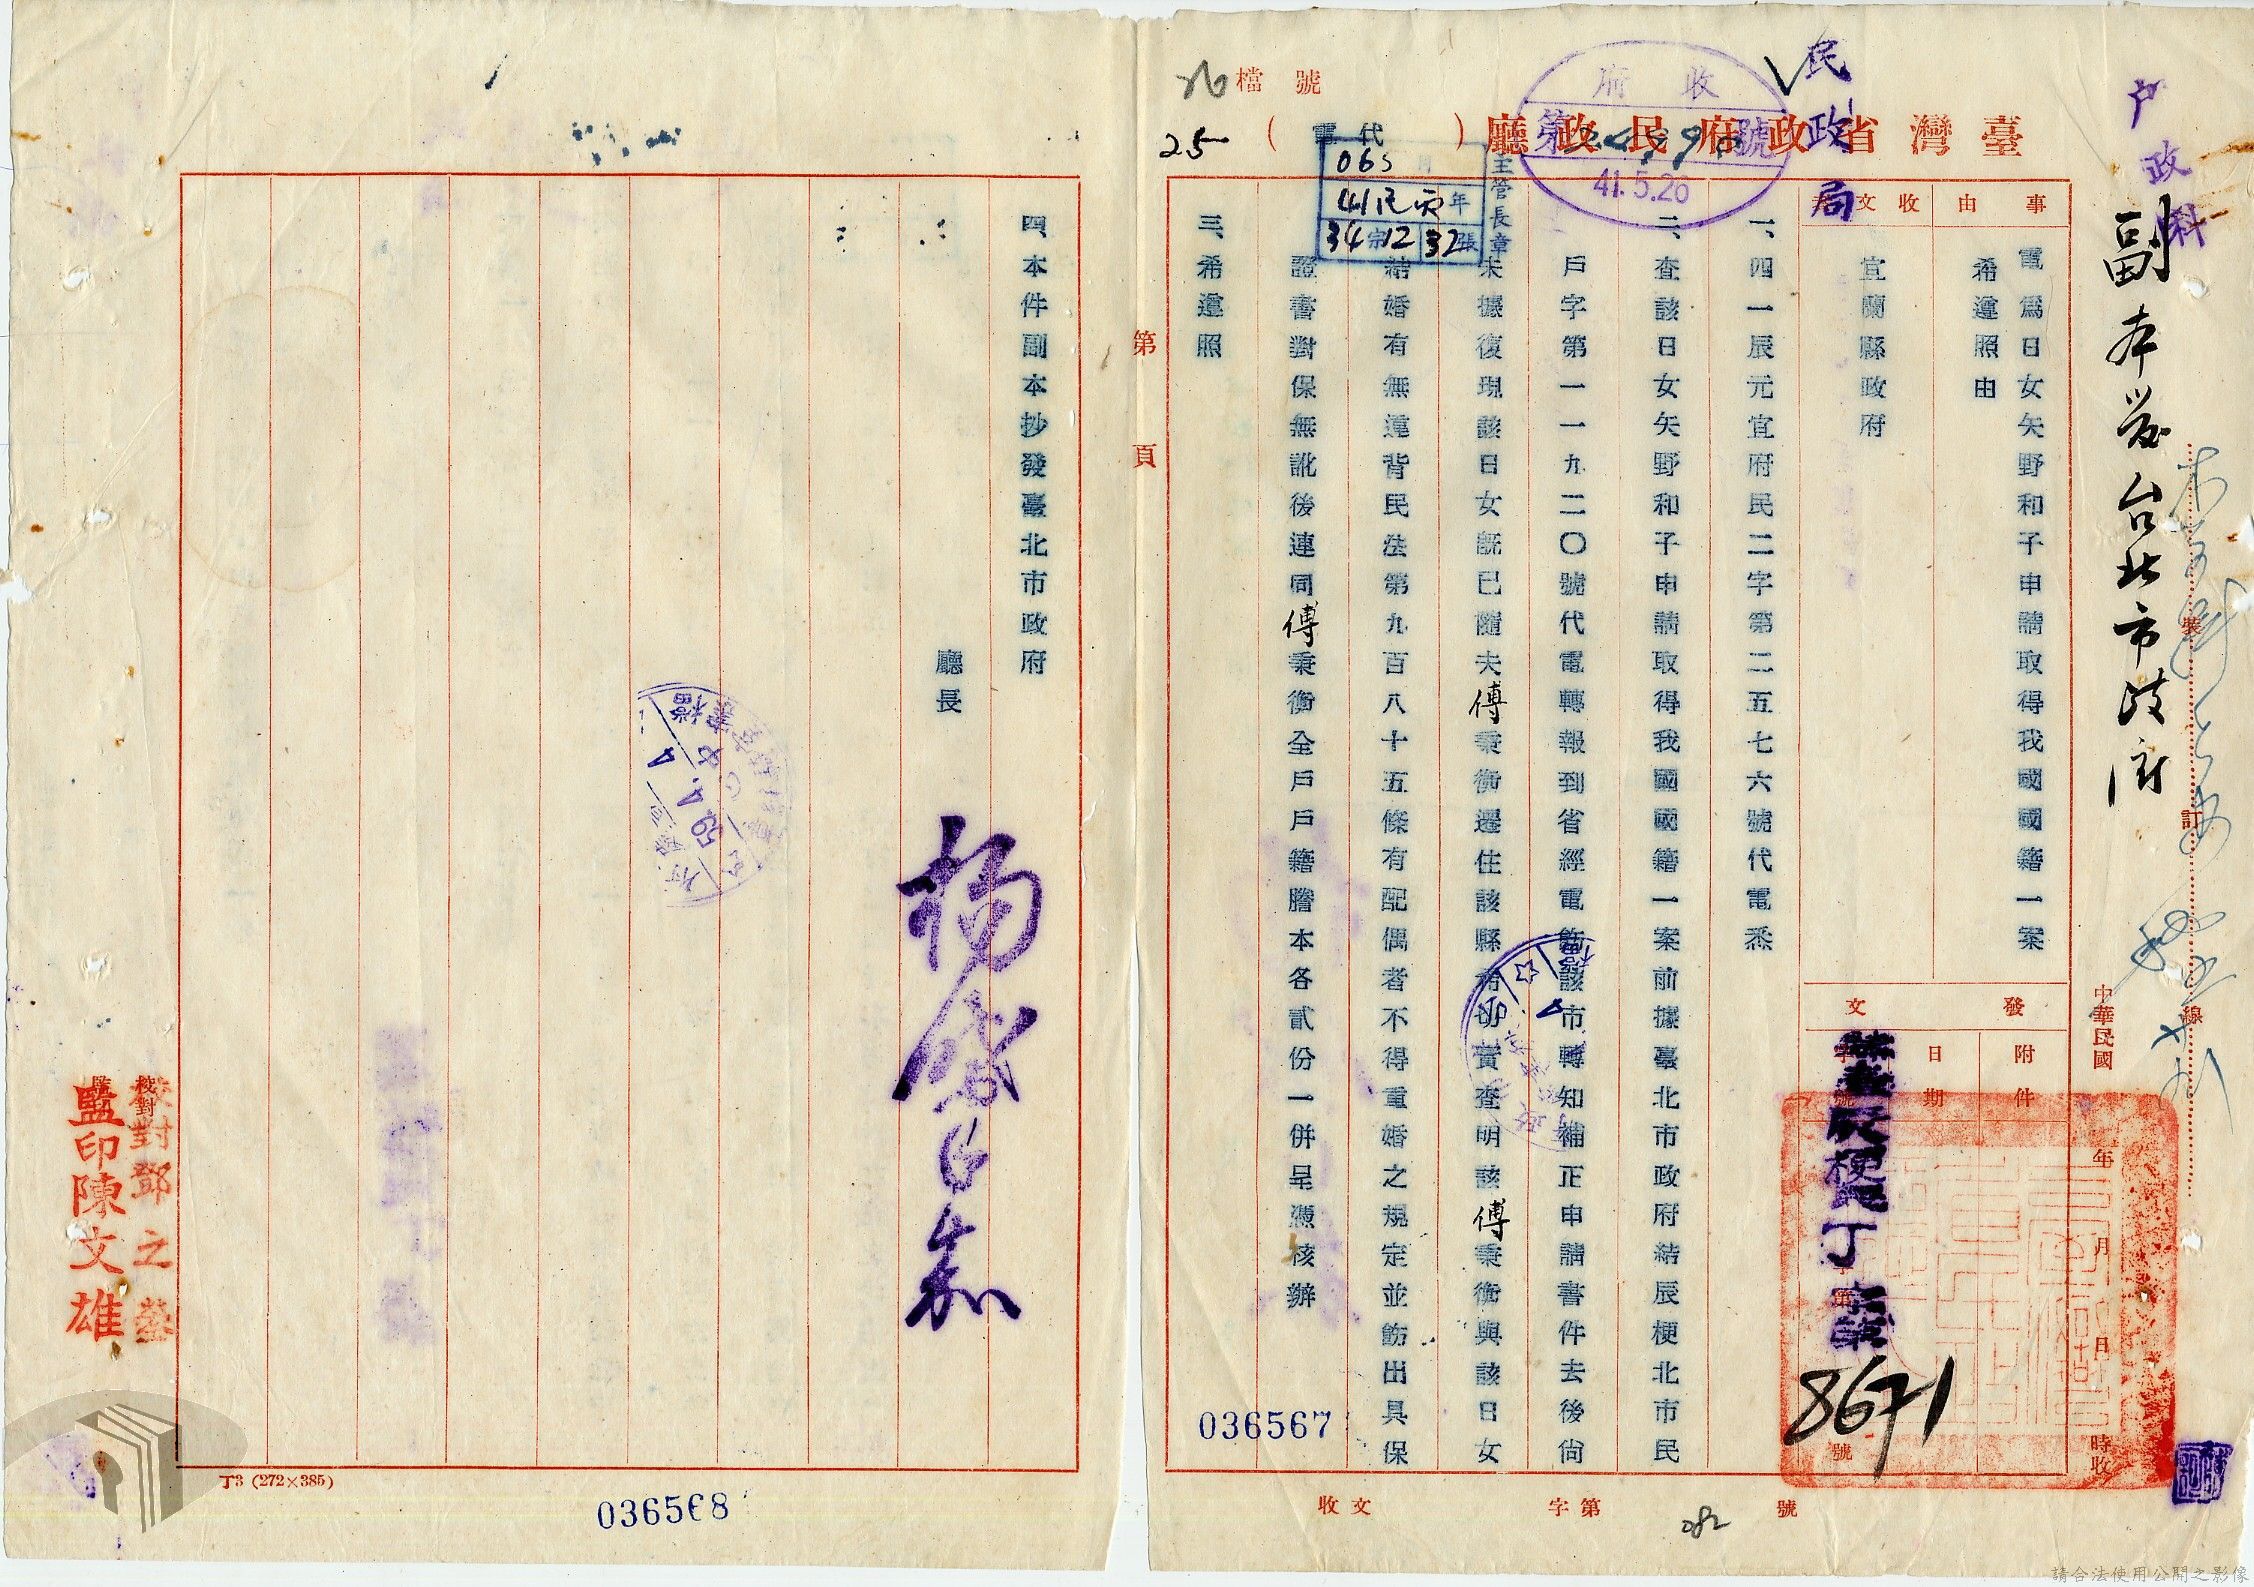 臺灣省政府民政廳（代電）
檔號
25
民政局
戶政科
副本發台北市政府
收府
第 號
41.5.26
主管長章
41 年
34宗12 32張
事由
電為日女矢野和子申請取得我國國籍一案
希遵照由
收文者
宜蘭縣政府
發文
附件
日期
字號
8671
號
中華民國
年月日時收
裝訂線
一、四一辰元宜府民二字第二五七六號代電悉
二、查該日女矢野和子申請取得我國國籍一案前據臺北市政府結辰梗北市民
戶字第一一九二〇號代電轉報到省經電飭該市轉知補正申請書件去後尚
未據復現該日女既已隨夫傅秉衡遷住該縣希切實查明該傅秉衡與該日女
結婚有無違背民法第九百八十五條有配偶者不得重婚之規定並飭出具保
證書對保無訛後連同傅秉衡全戶戶籍謄本各貳份一併呈憑核辦
三、希遵照
036567
收文 字第 號
082
第 頁
四、本件副本抄發臺北市政府
廳長
楊肇嘉
59.4.4
校對鄧之
監印陳文雄
丁3 (272×385)
036568
請合法使用公開之影像